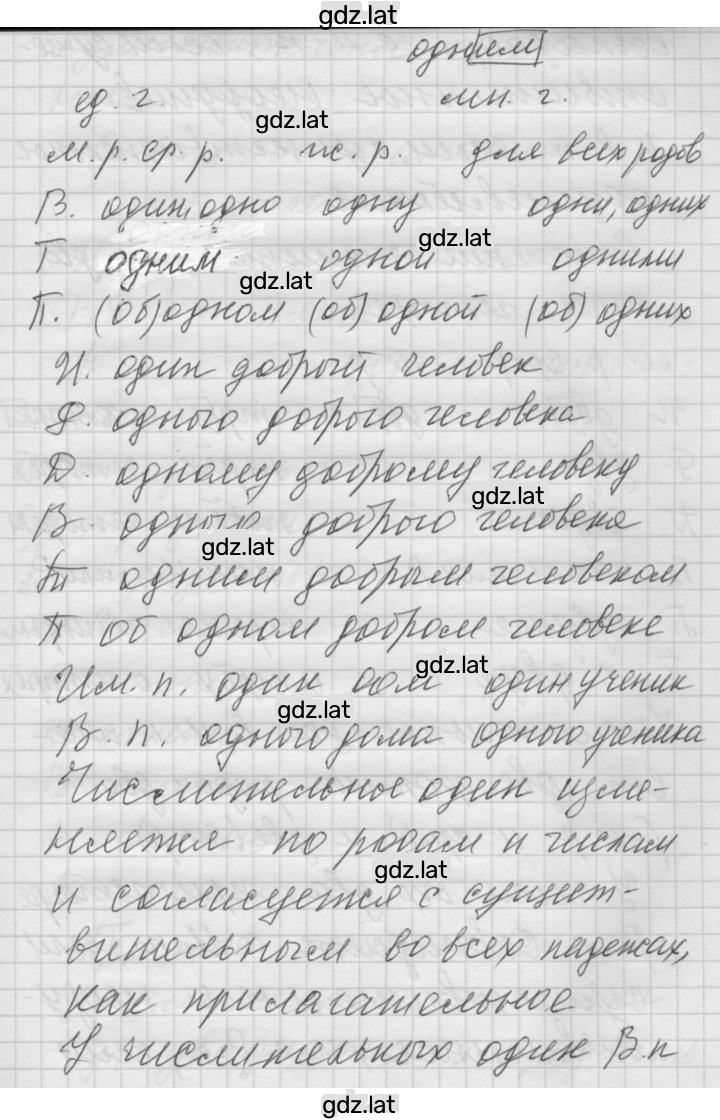 gdz.lat
одн|им|
ед. г. мн. г.
gdz.lat
м. р. ср. р. ж. р. для всех родов
В. один, одно одну одни, одних
gdz.lat
Т одним одной одними
gdz.lat
П. (об) одном (об) одной (об) одних
И. один добрый человек
Р. одного доброго человека
Д. одному доброму человеку
gdz.lat
В. одного доброго человека
gdz.lat
Т одним добрым человеком
П об одном добром человеке
gdz.lat
Им. п. один дом один ученик
gdz.lat
В. п. одного дома одного ученика
Числительное один изме-
няется по родам и числам
gdz.lat
и согласуется с сущест-
вительным во всех падежах,
как прилагательное
У числительных один В.п
gdz.lat